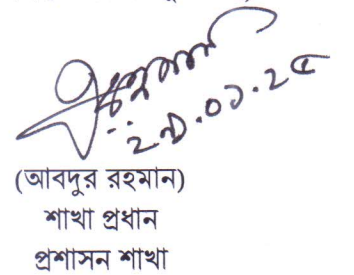 ২৯.০১.২৫
(আবদুর রহমান)
শাখা প্রধান
প্রশাসন শাখা